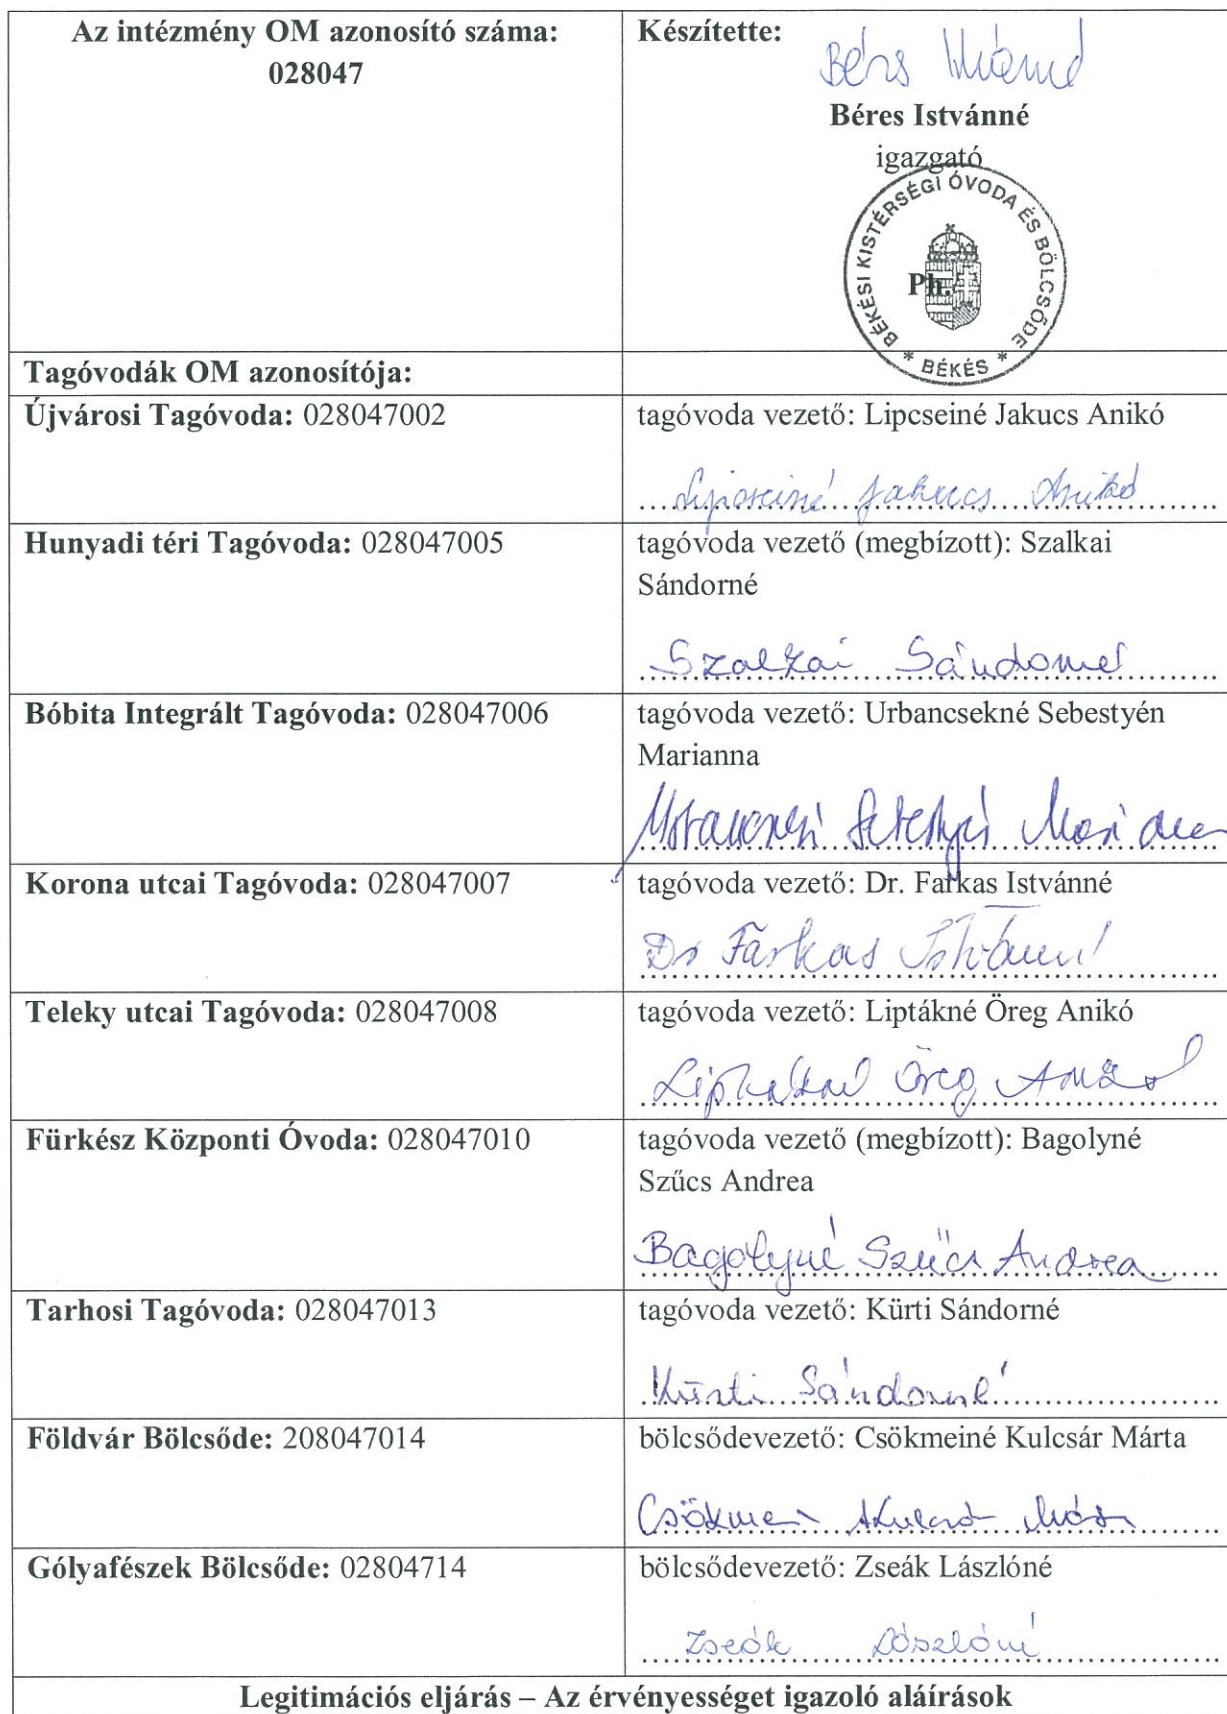 Az intézmény OM azonosító száma:
028047
Készítette:
Béres Istvánné
igazgató
BÉKÉSI KISTÉRSÉGI ÓVODA ÉS BÖLCSŐDE
Ph.
* BÉKÉS *
Tagóvodák OM azonosítója:
Újvárosi Tagóvoda: 028047002
tagóvoda vezető: Lipcseiné Jakucs Anikó
Lipcseiné Jakucs Anikó
Hunyadi téri Tagóvoda: 028047005
tagóvoda vezető (megbízott): Szalkai
Sándorné
Szalkai Sándorné
Bóbita Integrált Tagóvoda: 028047006
tagóvoda vezető: Urbancsekné Sebestyén
Marianna
Korona utcai Tagóvoda: 028047007
tagóvoda vezető: Dr. Farkas Istvánné
Dr Farkas Istvánné
Teleky utcai Tagóvoda: 028047008
tagóvoda vezető: Liptákné Öreg Anikó
Liptákné Öreg Anikó
Fürkész Központi Óvoda: 028047010
tagóvoda vezető (megbízott): Bagolyné
Szűcs Andrea
Bagolyné Szűcs Andrea
Tarhosi Tagóvoda: 028047013
tagóvoda vezető: Kürti Sándorné
Kürti Sándorné
Földvár Bölcsőde: 208047014
bölcsődevezető: Csökmeiné Kulcsár Márta
Gólyafészek Bölcsőde: 02804714
bölcsődevezető: Zseák Lászlóné
Zseák Lászlóné
Legitimációs eljárás – Az érvényességet igazoló aláírások